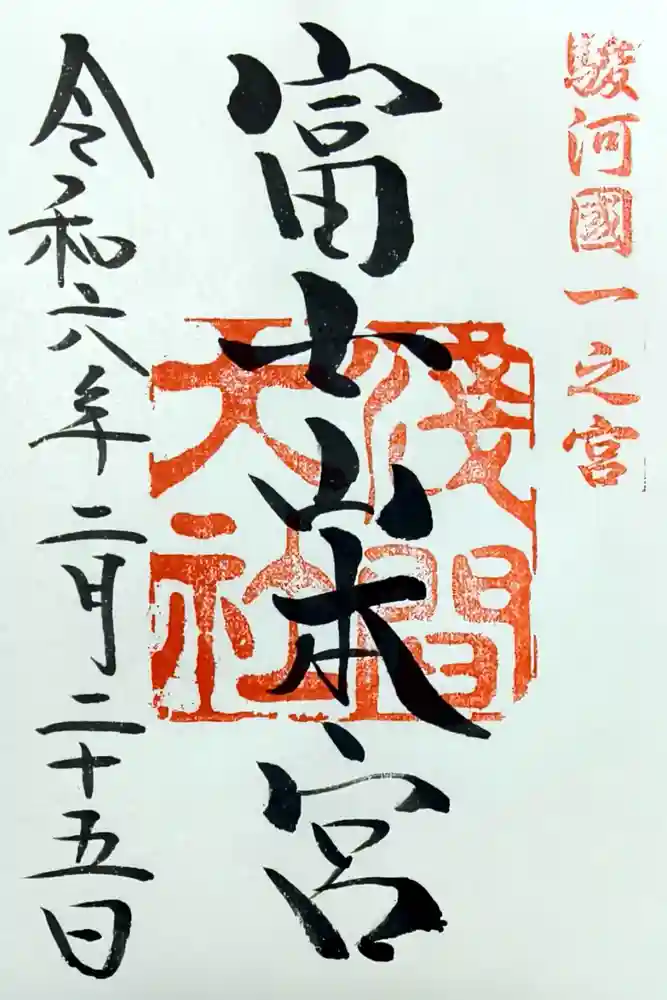 駿河國一之宮
富士山本宮
淺間大社
令和六年二月二十五日